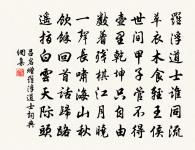 羅浮道士誰同流
草衣木食輕王侯
世間甲子管不得
壺裏乾坤只自由
數着殘棋江月曉
一聲長嘯海山秋
飲餘回首話歸路
遙指白雲天際頭
呂岩贈羅浮道士詞典
網集